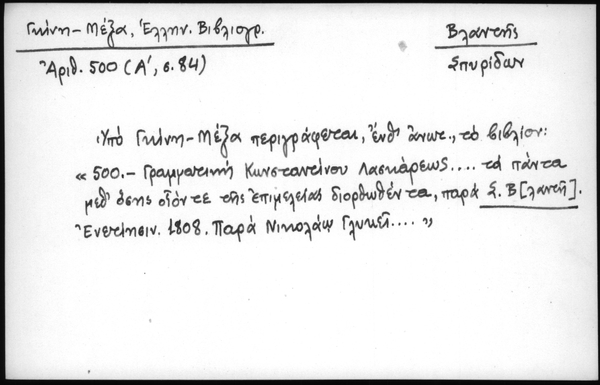 Γκίνη-Μέξα, Ἑλλην. Βιβλιογρ.
Βλαντῆς
Ἀριθ. 500 (Α', σ. 84)
Σπυρίδων
Ὑπό Γκίνη-Μέξα περιγράφεται, ἔνθ' ἄνωτ., τό βιβλίον:
« 500.- Γραμματική Κωνσταντίνου Λασκάρεως.... τά πάντα
μεθ' ὅσης οἷόν τε τῆς ἐπιμελείας διορθωθέντα, παρά Σ. Β[λαντῆ].
Ἐνετίησιν. 1808. Παρά Νικολάῳ Γλυκεῖ.... »